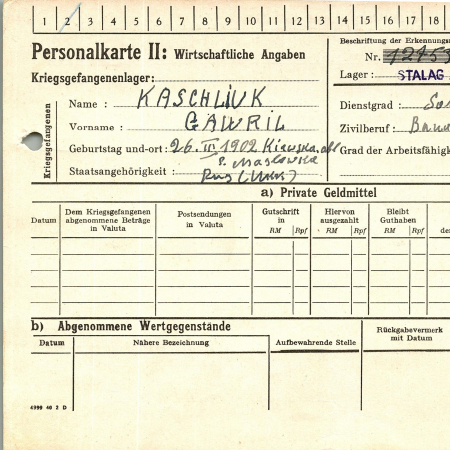 1 2 3 4 5 6 7 8 9 10 11 12 13 14 15 16 17 18
Personalkarte II: Wirtschaftliche Angaben
Beschriftung der Erkennungs
Nr. 12453
Kriegsgefangenenlager:
Lager: STALAG
Kriegsgefangenen
Name: KASCHLIUK
Dienstgrad:
Vorname: GAWRIL
Zivilberuf:
Geburtstag und -ort: 26. III 1902 Kiewska. obl
Grad der Arbeitsfähigk
P. Maslowka
Staatsangehörigkeit: Rus (Ukr.)
a) Private Geldmittel
Datum
Dem Kriegsgefangenen
abgenommene Beträge
in Valuta
Postsendungen
in Valuta
Gutschrift
in
RM Rpf
Hiervon
ausgezahlt
RM Rpf
Bleibt
Guthaben
RM Rpf
de
b) Abgenommene Wertgegenstände
Datum
Nähere Bezeichnung
Aufbewahrende Stelle
Rückgabevermerk
mit Datum
4999 40 2 D